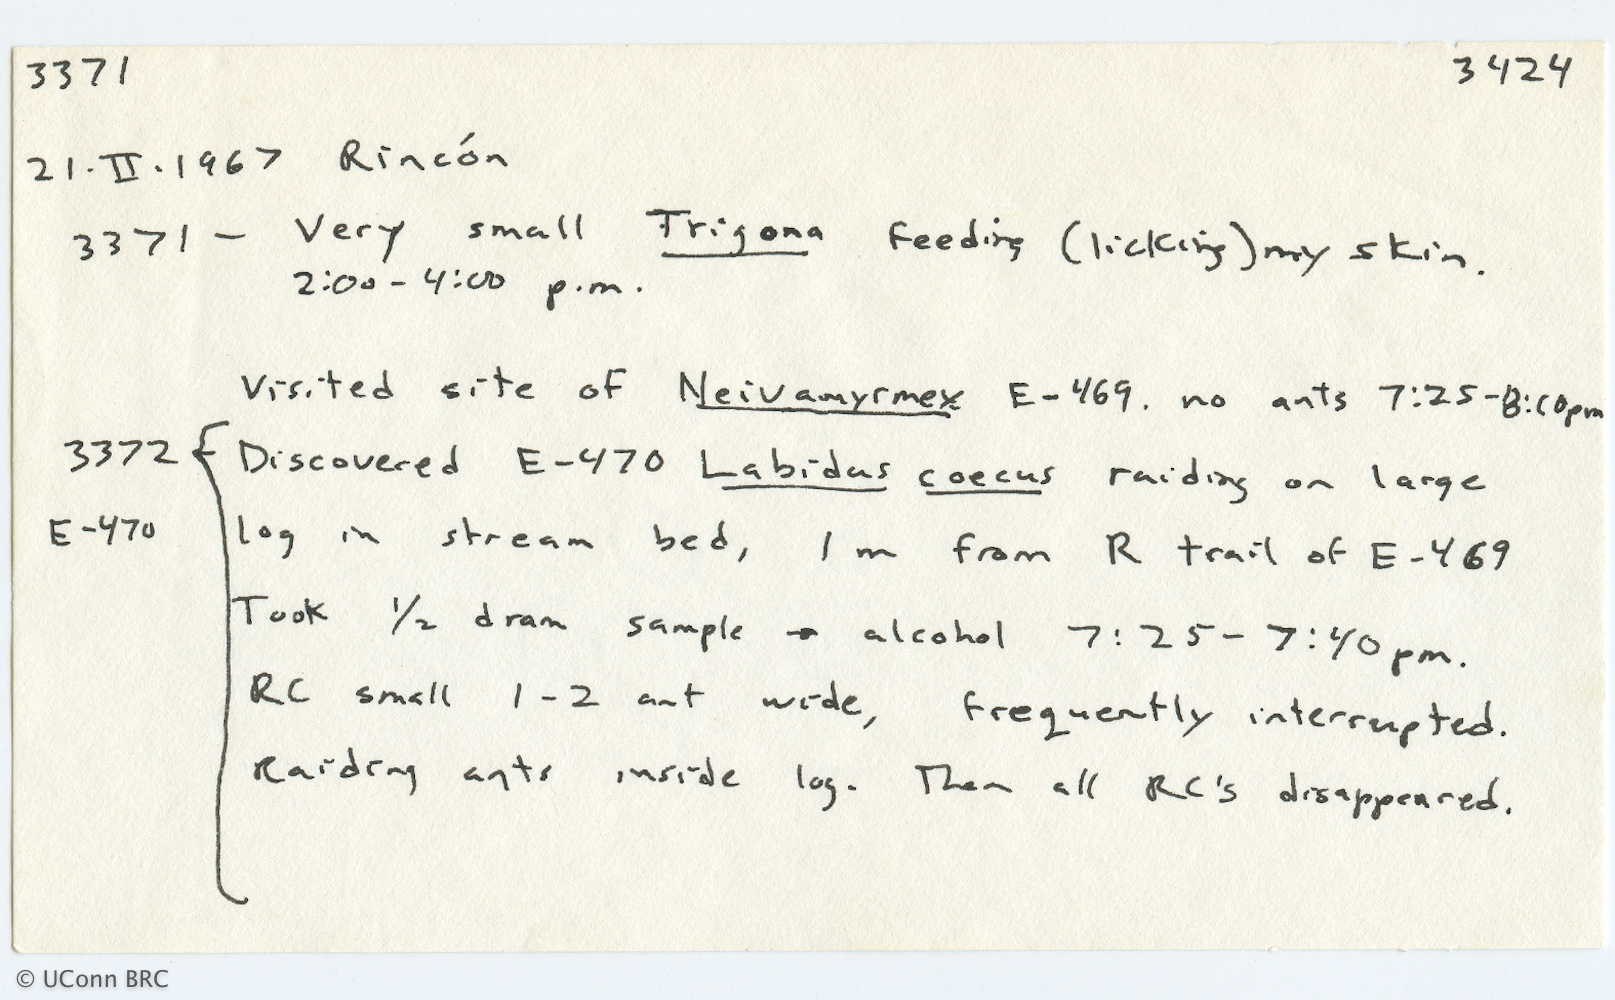 3371 3424
21.II.1967 Rincón
3371 - Very small Trigona feeding (licking) my skin.
2:00 - 4:00 p.m.
Visited site of Neivamyrmex E-469. no ants 7:25-8:10pm
3372 { Discovered E-470 Labidus coecus raiding on large
E-470 log in stream bed, 1 m from R trail of E-469
Took 1/2 dram sample → alcohol 7:25 - 7:40 pm.
RC small 1-2 ant wide, frequently interrupted.
Raiding ants inside log. Then all RC's disappeared.
© UConn BRC